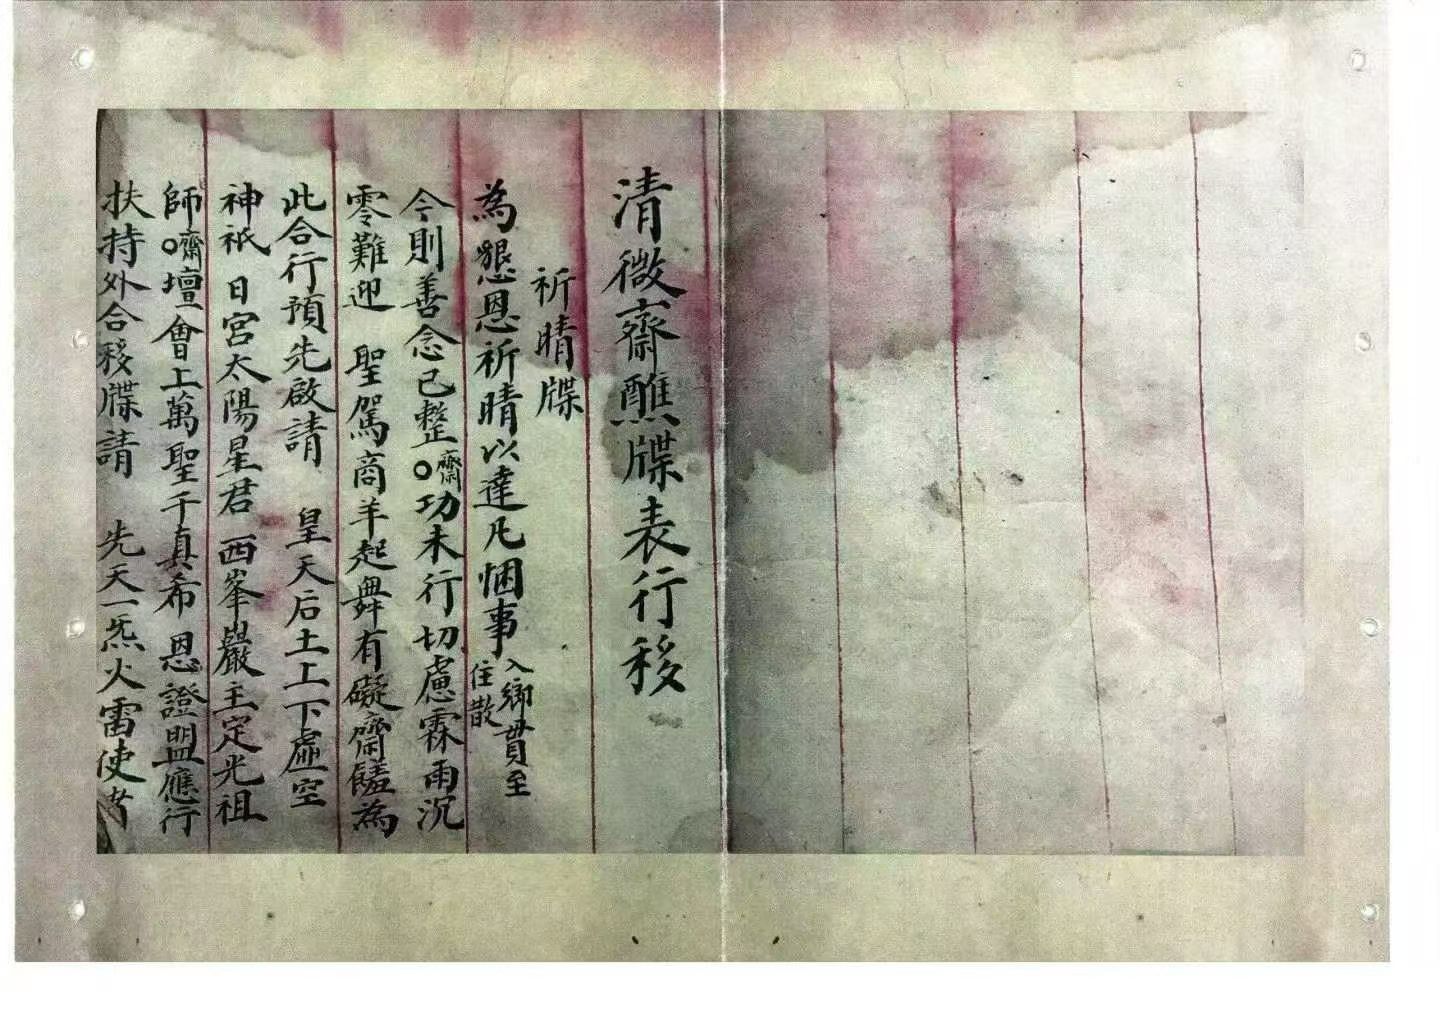 清微齋醮牒表行移
祈晴牒
為懇恩祈晴以達凡悃事入鄉貫至住散
今則善念已整齋○功未行切慮霖雨沉
零難迎 聖駕商羊起舞有礙齋饈為
此合行預先啟請 皇天后土上下虛空
神祇 日宮太陽星君 西峯巖主定光祖
師○齋壇會上萬聖千真希 恩證盟應行
扶持外合移牒請 先天一炁火雷使者